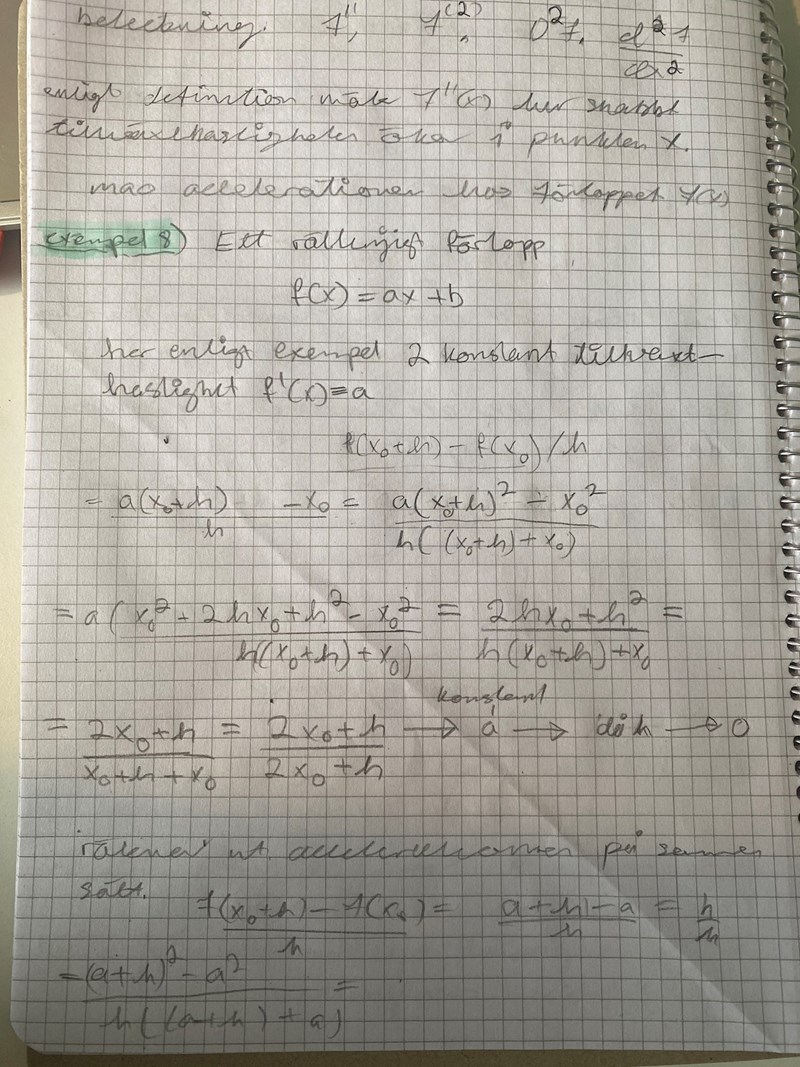 beteckning. f'', f⁽²⁾, D²f, d²f/dx²
enligt definition måte f''(x) hur snabbt
tillväxthastigheten ökar i punkten x.
mao accelerationen hos förloppet f(x)
exempel 8) Ett rätlinjigt förlopp
f(x) = ax + b
har enligt exempel 2 konstant tillväxt-
hastighet f'(x) = a
f(x₀+h) - f(x₀)/h
= a(x₀+h) - x₀ / h = a(x₀+h)² - x₀² / h((x₀+h)+x₀)
= a(x₀² + 2hx₀ + h² - x₀² / h((x₀+h)+x₀) = 2hx₀ + h² / h(x₀+h)+x₀ =
konstant
= 2x₀+h / x₀+h+x₀ = 2x₀+h / 2x₀+h → a → då h → 0
räknar ut accelerationen på samma
sätt. f(x₀+h) - f(x₀) / h = a+h-a / h = h/h
= (a+h)² - a² / h((a+h)+a) =